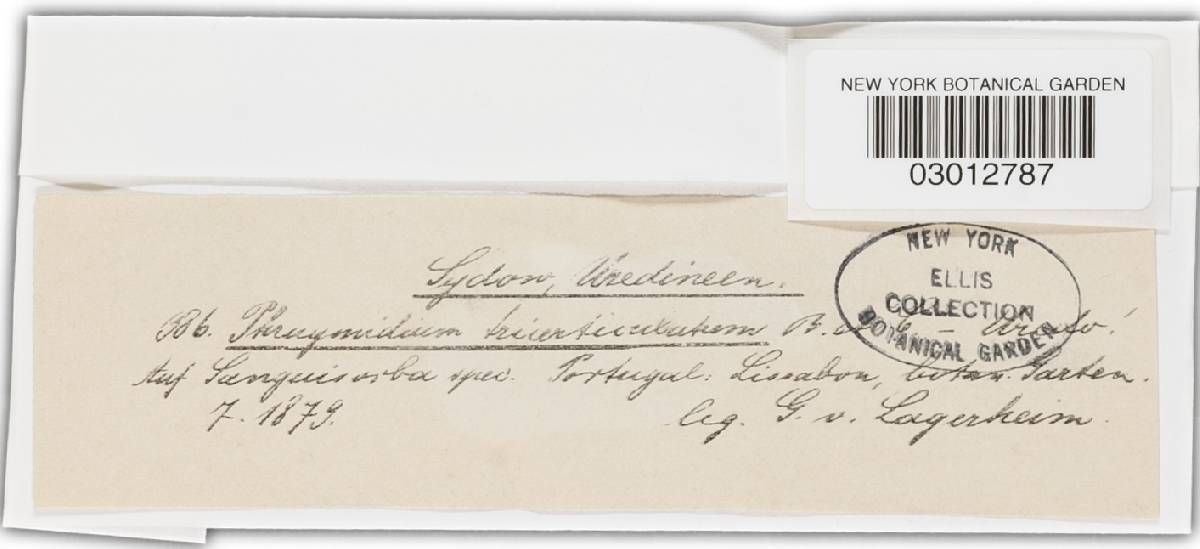 NEW YORK BOTANICAL GARDEN
03012787
NEW YORK
ELLIS
COLLECTION
BOTANICAL GARDEN
Sydow, Uredineen.
Phragmidium triarticulatum B. et C.
Auf Sanguisorba spec. Portugal: Lissabon, botan. Garten.
7. 1879. leg. G. v. Lagerheim.